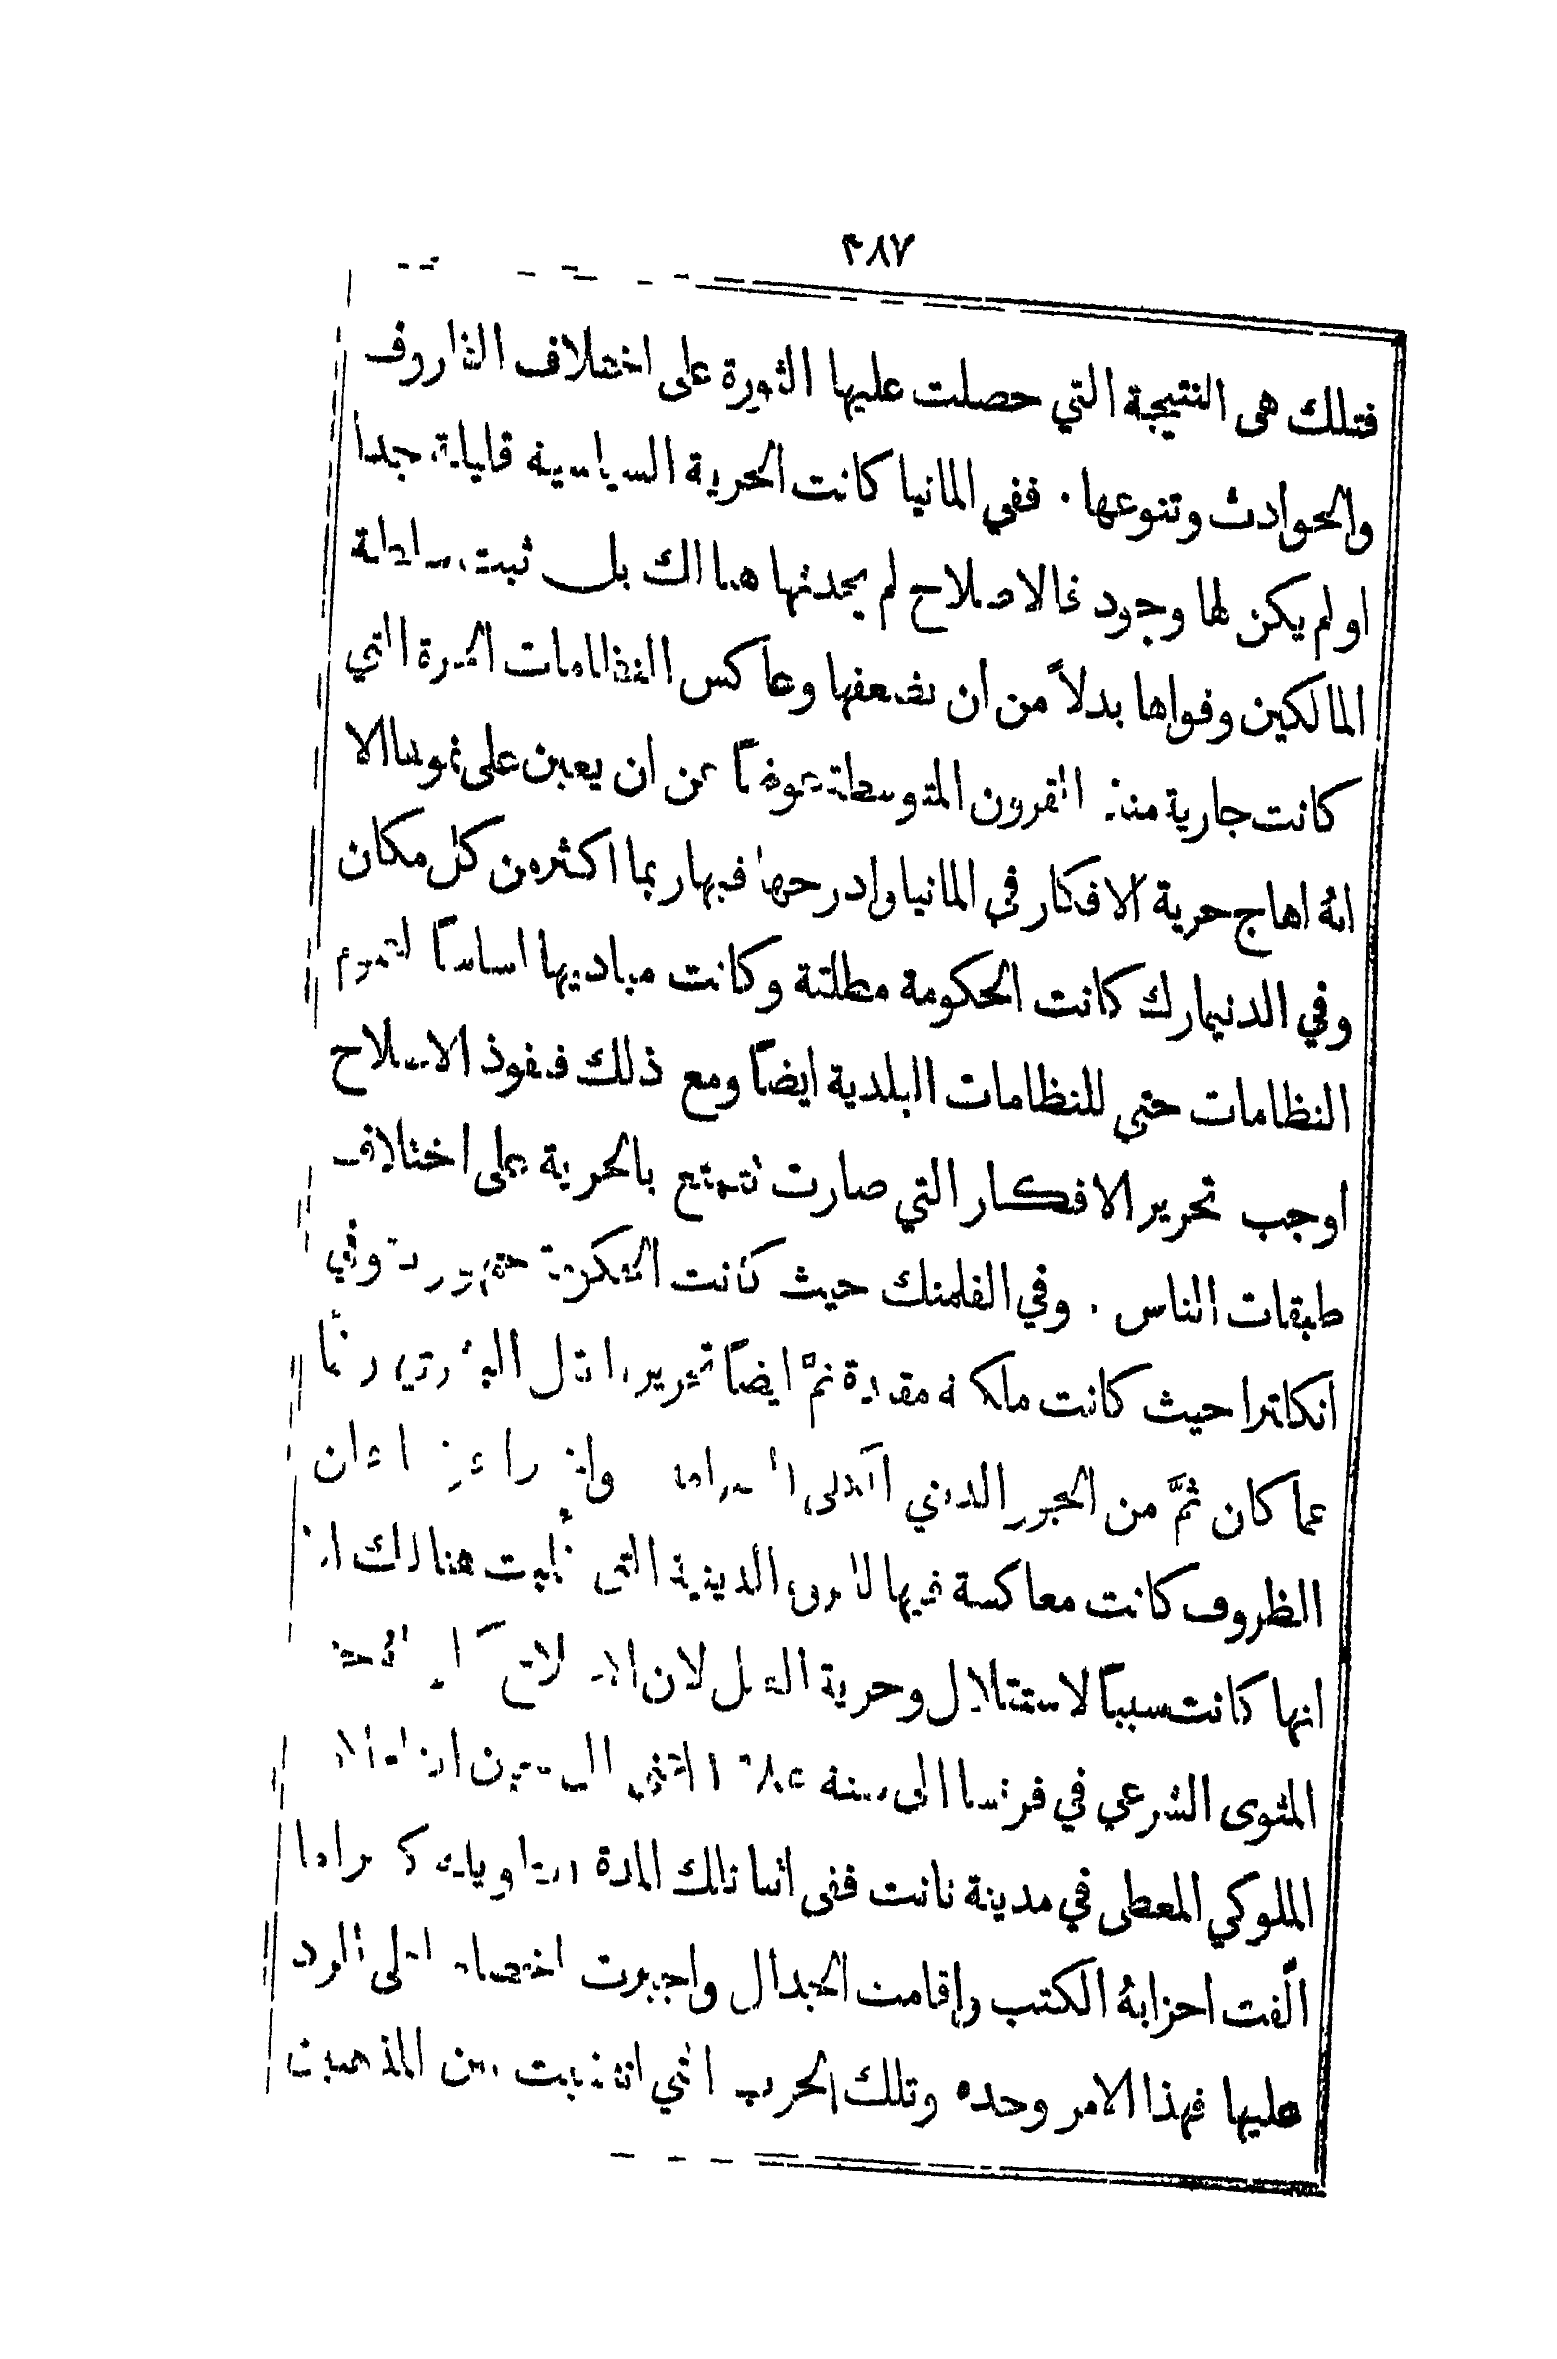 ٣٨٧
فتلك هى النتيجة التي حصلت عليها الثورة على اختلاف الظروف
والحوادث وتنوعها . ففي المانيا كانت الحرية السياسية قليلة جدا
او لم يكن لها وجود فالاصلاح لم يحدثها هنالك بل ثبت سلطة
المالكين وقواها بدلاً من ان يضعفها وعاكس النظامات الحرة التي
كانت جارية منذ القرون المتوسطة عوضًا عن ان يعين على نموها الا
انهُ اهاج حرية الافكار في المانيا وادرجها فيها ربما اكثر من كل مكان
وفي الدنيمارك كانت الحكومة مطلقة وكانت مباديها اساسًا لتموم
النظامات حتى للنظامات البلدية ايضًا ومع ذلك فنفوذ الاصلاح
اوجب تحرير الافكار التي صارت تتمتع بالحرية على اختلاف
طبقات الناس . وفي الفلمنك حيث كانت الحكومة جمهورية وفي
انكلترا حيث كانت ملكية مقيدة تمَّ ايضًا تحرير العقل البشري رغمًا
عما كان ثمَّ من الجور الديني
الظروف كانت معاكسة فيها للثورة الدينية التي غلبت هنالك
انها كانت سببًا لاستقلال وحرية العقل لان الاصلاح
المثوى الشرعي في فرنسا الى سنة
الملوكي المعطى في مدينة نانت ففى اثنا تلك المدة الطويلة
الّفت احزابهُ الكتب واقامت الجدال واجبرت اخصامه على الرد
عليها فهذا الامر وحده وتلك الحرب التي انتشبت بين المذهبين